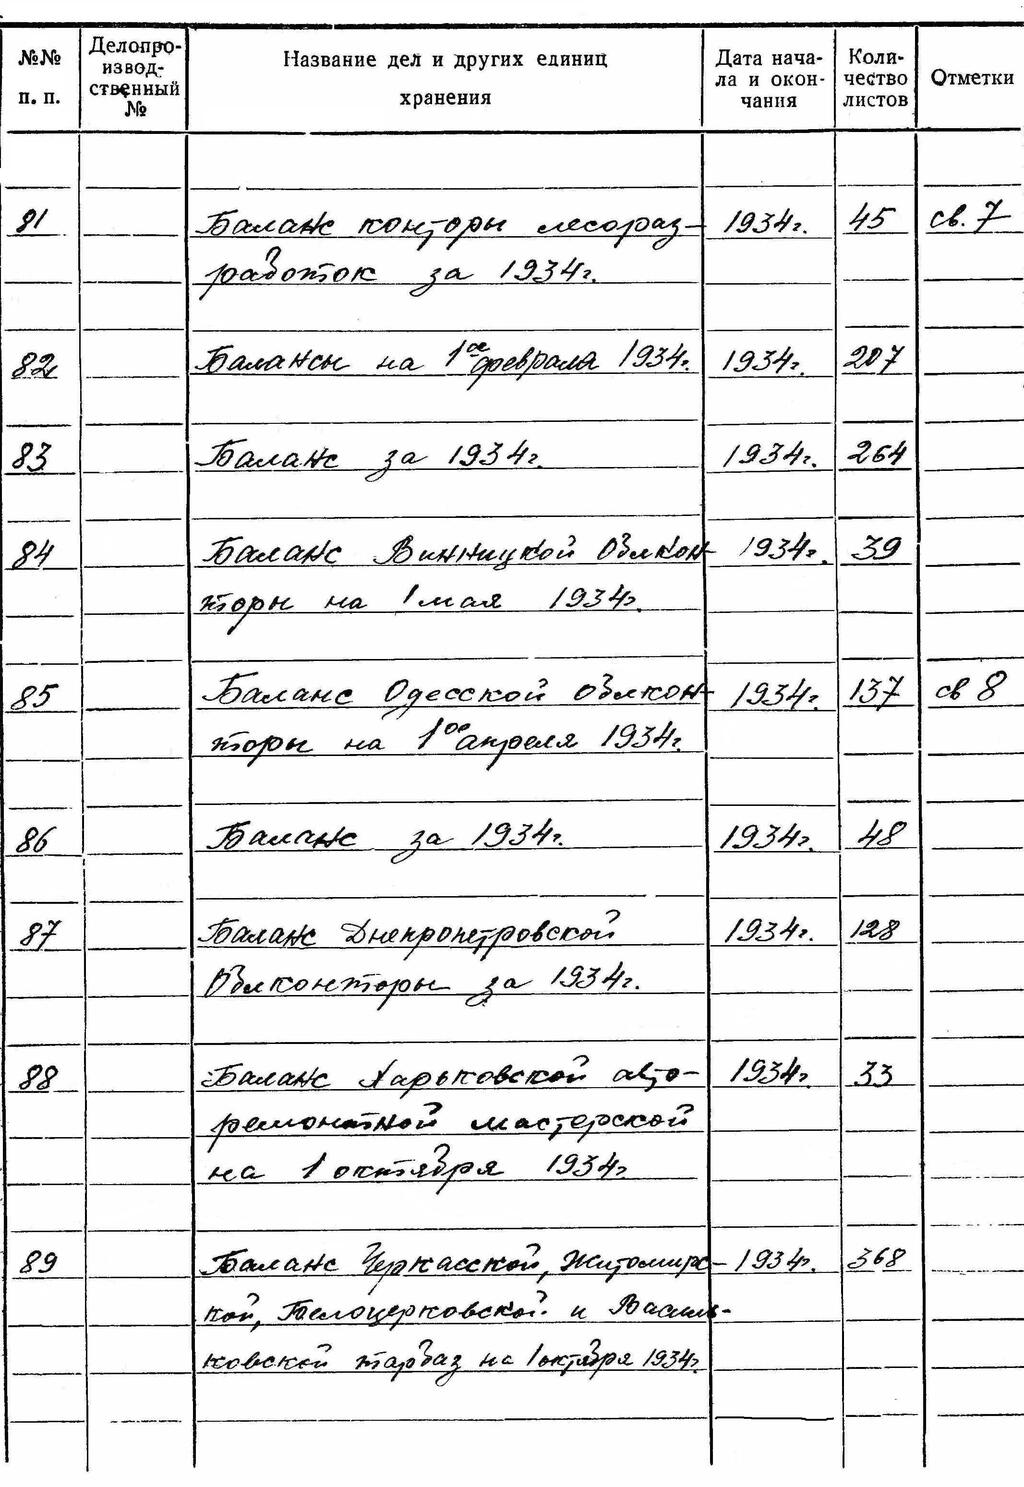 №№ п. п.
Делопро-
извод-
ственный
№
Название дел и других единиц
хранения
Дата нача-
ла и окон-
чания
Коли-
чество
листов
Отметки
81 Баланс конторы лесораз- 1934г. 45 св. 7
работок за 1934г.
82 Балансы на 1ое февраля 1934г. 1934г. 207
83 Баланс за 1934г. 1934г. 264
84 Баланс Винницкой Облкон- 1934г. 39
торы на 1 мая 1934г.
85 Баланс Одесской облкон- 1934г. 137 св 8
торы на 1ое апреля 1934г.
86 Баланс за 1934г. 1934г. 48
87 Баланс Днепропетровской 1934г. 128
Облконторы за 1934г.
88 Баланс Харьковской авто- 1934г. 33
ремонтной мастерской
на 1 октября 1934г.
89 Баланс Черкасской, Житомирс- 1934г. 368
кой, Белоцерковской и Василь-
ковской тарбаз на 1 октября 1934г.